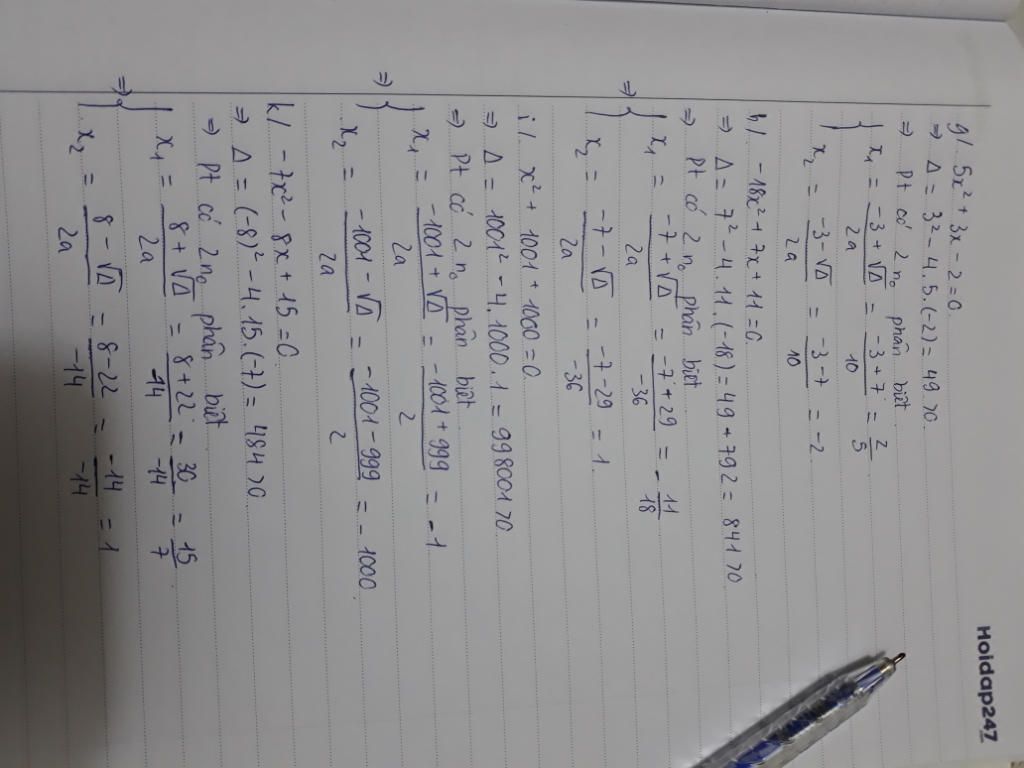 Hoidap247
g/. 5x² + 3x - 2 = 0.
⇒ Δ = 3² - 4.5.(-2) = 49 > 0.
⇒ Pt có 2 n₀ phân biệt
{ x₁ = (-3 + √Δ)/2a = (-3 + 7)/10 = 2/5
x₂ = (-3 - √Δ)/2a = (-3 - 7)/10 = -2.
h/. -18x² + 7x + 11 = 0.
⇒ Δ = 7² - 4.11.(-18) = 49 + 792 = 841 > 0.
⇒ Pt có 2 n₀ phân biệt
⇒ { x₁ = (-7 + √Δ)/2a = (-7 + 29)/-36 = -11/18
x₂ = (-7 - √Δ)/2a = (-7 - 29)/-36 = 1.
i/. x² + 1001 + 1000 = 0.
⇒ Δ = 1001² - 4.1000.1 = 998001 > 0.
⇒ Pt có 2 n₀ phân biệt
⇒ { x₁ = (-1001 + √Δ)/2a = (-1001 + 999)/2 = -1
x₂ = (-1001 - √Δ)/2a = (-1001 - 999)/2 = -1000.
k/. -7x² - 8x + 15 = 0.
⇒ Δ = (-8)² - 4.15.(-7) = 484 > 0.
⇒ Pt có 2 n₀ phân biệt
⇒ { x₁ = (8 + √Δ)/2a = (8 + 22)/-14 = 30/-14 = 15/7.
x₂ = (8 - √Δ)/2a = (8 - 22)/-14 = -14/-14 = 1